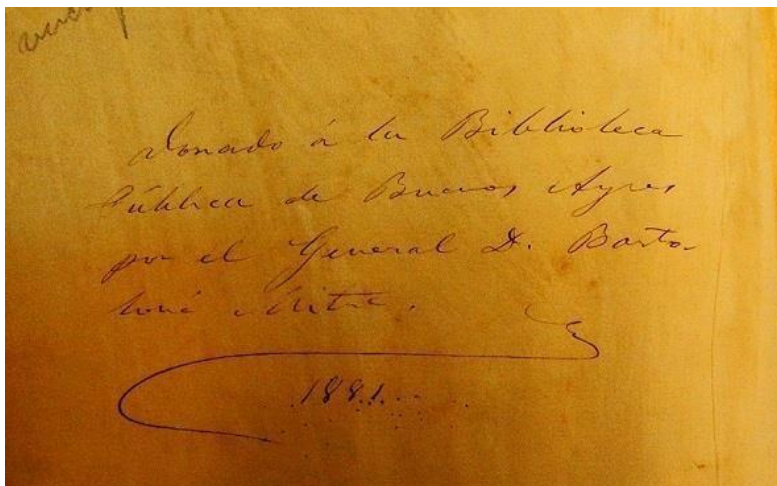 Donado á la Biblioteca
Pública de Buenos Ayres
por el General D. Barto-
lomé Mitre.
1881.